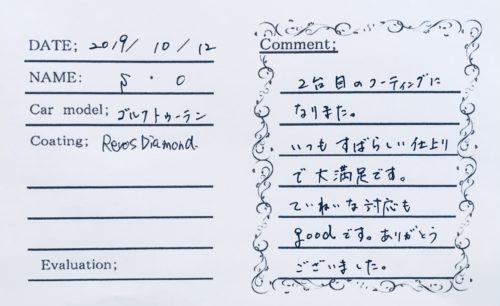 DATE; 2019/10/12
NAME: S・O
Car model; ゴルフトゥーラン
Coating; Reyes Diamond
Evaluation;
Comment;
2台目のコーティングに
なりました。
いつもすばらしい仕上り
で大満足です。
ていねいな対応も
goodです。ありがとう
ございました。